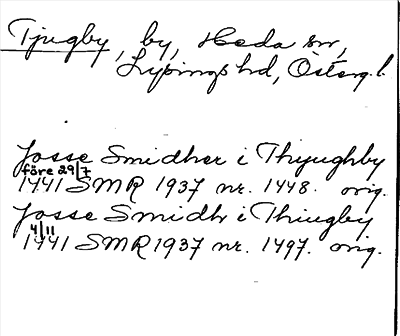 Tjugby, by, Heda sn,
Lysings hd, Österg.l.
Josse Smidher i Thyughby
före 29/7
1441 SMR 1937 nr. 1448. orig.
Josse Smidh i Thiugby
4/11
1441 SMR 1937 nr. 1497. orig.